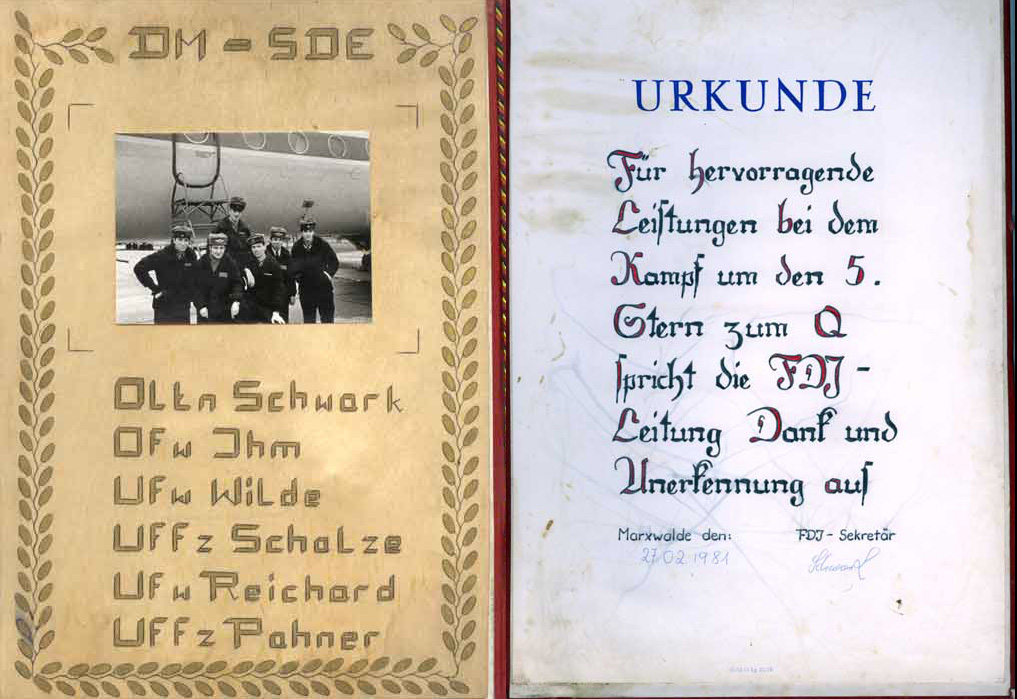 DM - SDE
OLtn Schwark
OFw Ihm
UFw Wilde
UFFz Scholze
UFw Reichard
UFFz Pahner
URKUNDE
Für hervorragende
Leistungen bei dem
Kampf um den 5.
Stern zum Q
spricht die FDJ -
Leitung Dank und
Anerkennung aus
Marxwalde den: FDJ - Sekretär
27.02.1981